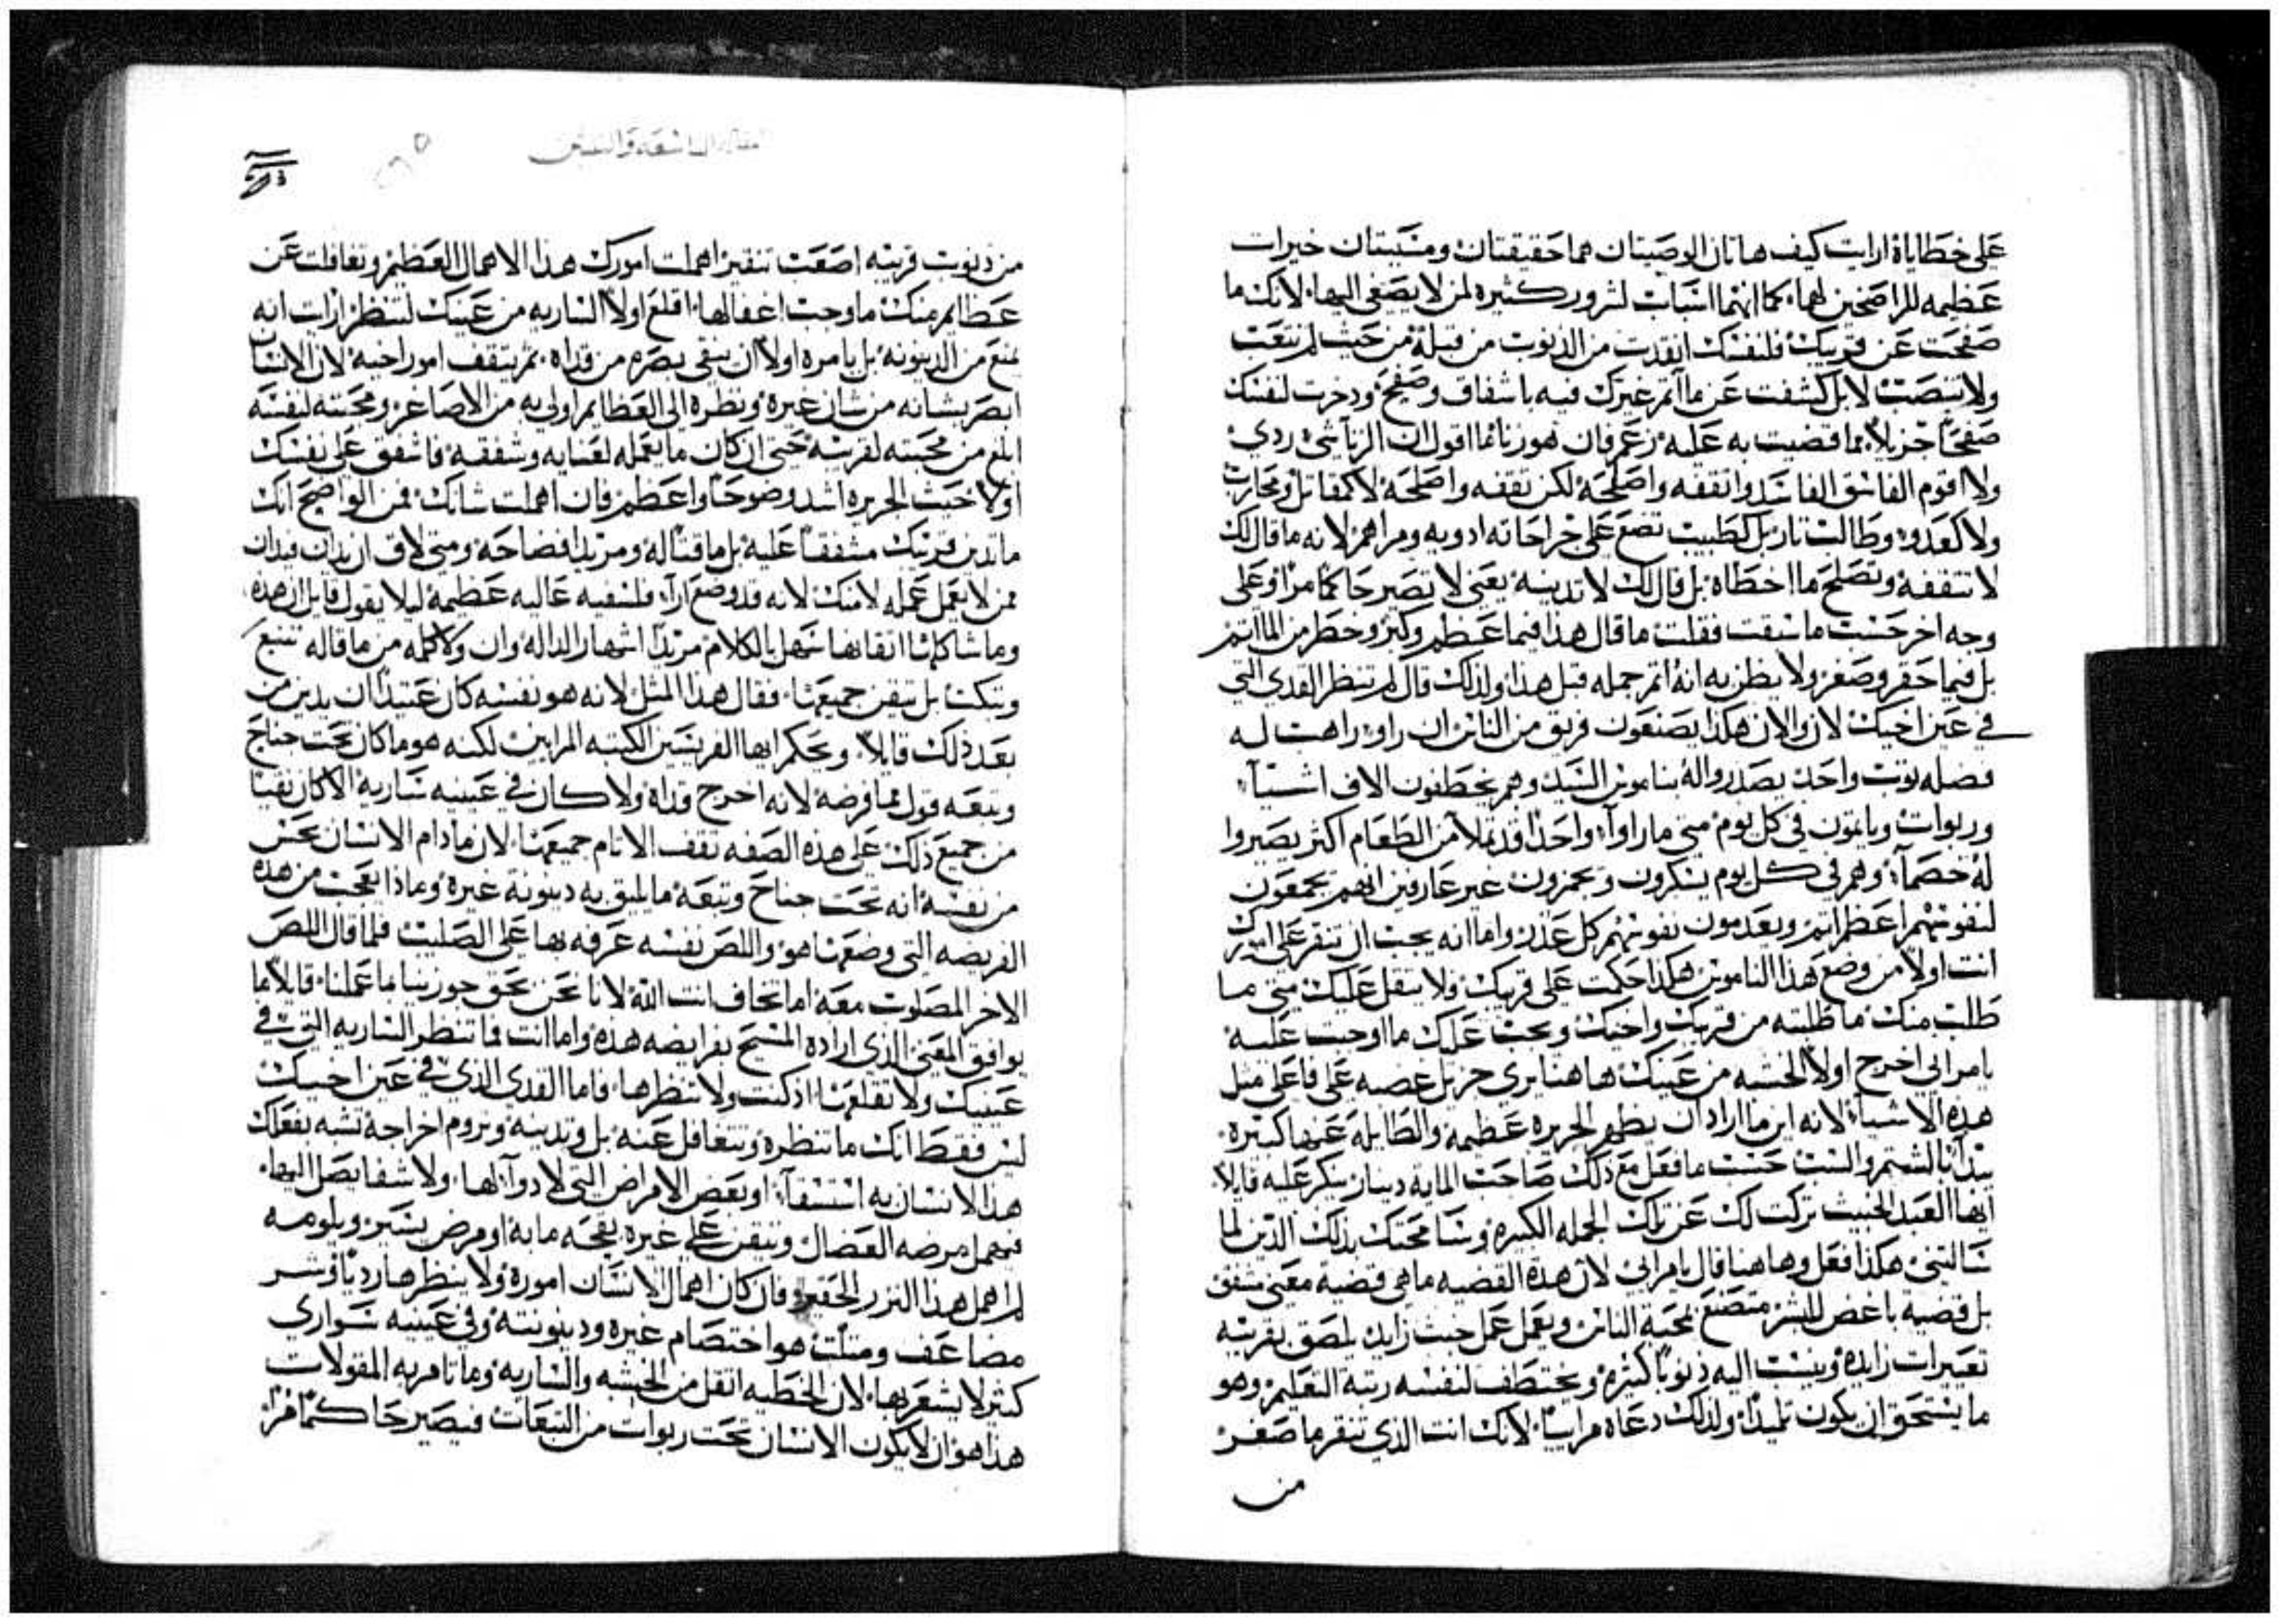 على خطاياة ارايت كيف هاتان الوصيتان هما خفيفتان ومسببتان خيرات
عظيمه للراضخين لهما، كما انهما اسباب لشرور كثيره لمن لا يصغي اليها، لانك ما
صفحت عن قريبك فلنفسك انقدت من الذنوب من قبله من حيث لم تتعب
ولا تنصب لا بل كشفت عن ما اثم غيرك فيه باشفاق وصفح، ودخرت لنفسك
صفحًا جزيلاً، مما قضيت به عليه، زعم فان هو زنا، فما اقول ان الزنا شي ردي
ولا اقوم الفاسق الفاسد واثقفه واصلحه، لكن ثقفه واصلحه لا كمقاتل ومحارب
ولا كعدو، وطالب تار بل كطبيب تضع على جراحاته ادويه ومراهم، لانه ما قال لك
لا تثقفه وتصلح ما اخطاه، بل قال لك لا تدينه، يعني لا تصير حاكمًا مرًا، وعلى
وجه اخر حسب ما سبقت فقلت ما قال هذا فيما عظم وكبر وخطر من الماثم
بل فيما حقر وصغر ولا يظن به انه اثم جمله قبل هذا، ولذلك قال لم تنظر القدي التي
في عين اخيك لان والان هكذا يصنعون فريق من الناس ان راوا راهب له
فضله ثوب واحد يصدروا له بناموس السيد وهم يخطفون الاف اشيآء
وربوات وياثمون في كل يوم، متى ما راوآ، واحدًا قد تملا من الطعام اكثر يصيروا
له خصمآء، وهم في كل يوم يسكرون ويخمرون غير عارفين انهم يجمعون
لنفوسهم اعظم اثم، ويعدمون نفوسهم كل عذر، واما انه يجب ان تنقر على اثرك
انت اولاً من وضع هذا الناموس هكذا حكمت على قريبك، ولا يثقل عليك متى ما
طلب منك ما طلبته من قريبك واخيك ويجب عليك ما اوجبت عليه
يامرائي اخرج اولاً الخشبه من عينك هاهنا يري جزيل غضبه على فاعلي مثل
هذه الاشيآء لانه اين ما اراد ان يظهر الجريره عظيمه والطايله عنها كبيره
يبدآ بالشتم والسب حسب ما فعل مع ذلك صاحب المايه دينار ينكر عليه قايلاً
ايها العبد الخبيث تركت لك عن تلك الجمله الكبيرة وسامحتك بذلك الدين لما
سالتني، هكذا فعل وهاهنا قال يامرائي لان هذه القضيه ما هي قضية معني مشفق
بل قضية باغض للبشر متصنع بمحبة الناس ويعمل عمل خبث زايد يلصق بقريبه
تعييرات زايدة وينسب اليه ذنوبًا كثيره ويختطف لنفسه رتبة التعليم وهو
ما يستحق ان يكون تلميذًا، ولذلك دعاه مراييًا، لانك انت الذي تنقر ما صغر
من
المقاله التاسعه والستين
٨٥
من ذنوب قريبه اصعب تنقير اهملت امورك هذا الاهمال العظيم وتغافلت عن
عظايم منك ما وجب اغفالها، اقلع اولاً الساريه من عينك لتنظر، ارايت انه
يمنع من الدينونه، بل يامره اولاً ان ينقي بصره من قداه، ثم يثقف امور اخيه، لان الانسان
ابصر بشانه من شان غيره ونظره الى العظايم اولي به من الاصاغر، ومحبته لنفسه
ابلغ من محبته لقريبه، حتى ان كان ما يعمله لعنايه وشفقه فاشفق على نفسك
اولاً حيث الجريره اشد وضوحًا واعظم، فان اهملت شانك فمن الواضح انك
ما تدين قريبك مشفقًا عليه بل ماقتًا له ومريدًا فضاحه، ومتى لاق ان يدان فيدان
ممن لا يعمل عمله لا منك، لانه قد وضع ارآء فلسفيه عاليه عظيمه ليلا يقول قايل ان هذه
وما شاكلها اتقانها سهل بالكلام مريدًا اشهار الداله وان ولا كلمه من ما قاله تتبع
وتبكت بل تيقن جميعها، فقال هذا المثل لانه هو نفسه كان عتيدًا ان يدين من
بعد ذلك قايلاً، ويحكم ايها الفريسين الكتبه المرايين لكنه هو ما كان تحت جناح
وتبعه قول مما فرضه، لانه اخرج قداة ولا كان في عينيه ساريه الا كان نقيًا
من جميع ذلك، على هذه الصفه ثقف الاثام جميعها، لان ما دام الانسان يحس
من نفسه انه تحت جناح وتبعه ما يليق به دينونة غيره، وماذا تعجب من هذه
الفريضه التي وضعها هو، واللص نفسه عرفه بها على الصليب، فلما قال اللص
الاخر المصلوب معه اما تخاف انت الله، لانا نحن بحق جوزينا بما عملنا، قايلاً ما
يوافق المعني الذي اراده المسيح بفرايضه هذه، واما انت فما تنظر الساريه التي في
عينيك ولا تقلعها اذ كنت ولا تنظرها، فاما القدي الذي في عين اخيك
ليس فقط انك ما تنظره وتتغافل عنه، بل وتدينه وتروم اخراجه تشبه بفعلك
هذا الانسان به استسقآء، او بعض الامراض التي لا دوآ لها، ولا شفا يصل اليها،
فيهمل مرضه العضال ويتيقن على غيره بقحه ما به او مرض يسير ويلومه
لما اهمل هذا النزر الحقير، وفان كان اهمال الانسان اموره ولا ينظرها رديًا، فشر
مضاعف ومثلث هو اختصام غيره ودينونته وفي عينيه سواري
كثير لا يشعر بها، لان الخطيه اثقل من الخشبه والساريه، وما تامر به المقولات
هذا هو ان لا يكون الانسان تحت ربوات من التبعات فيصير حاكمًا مرًا